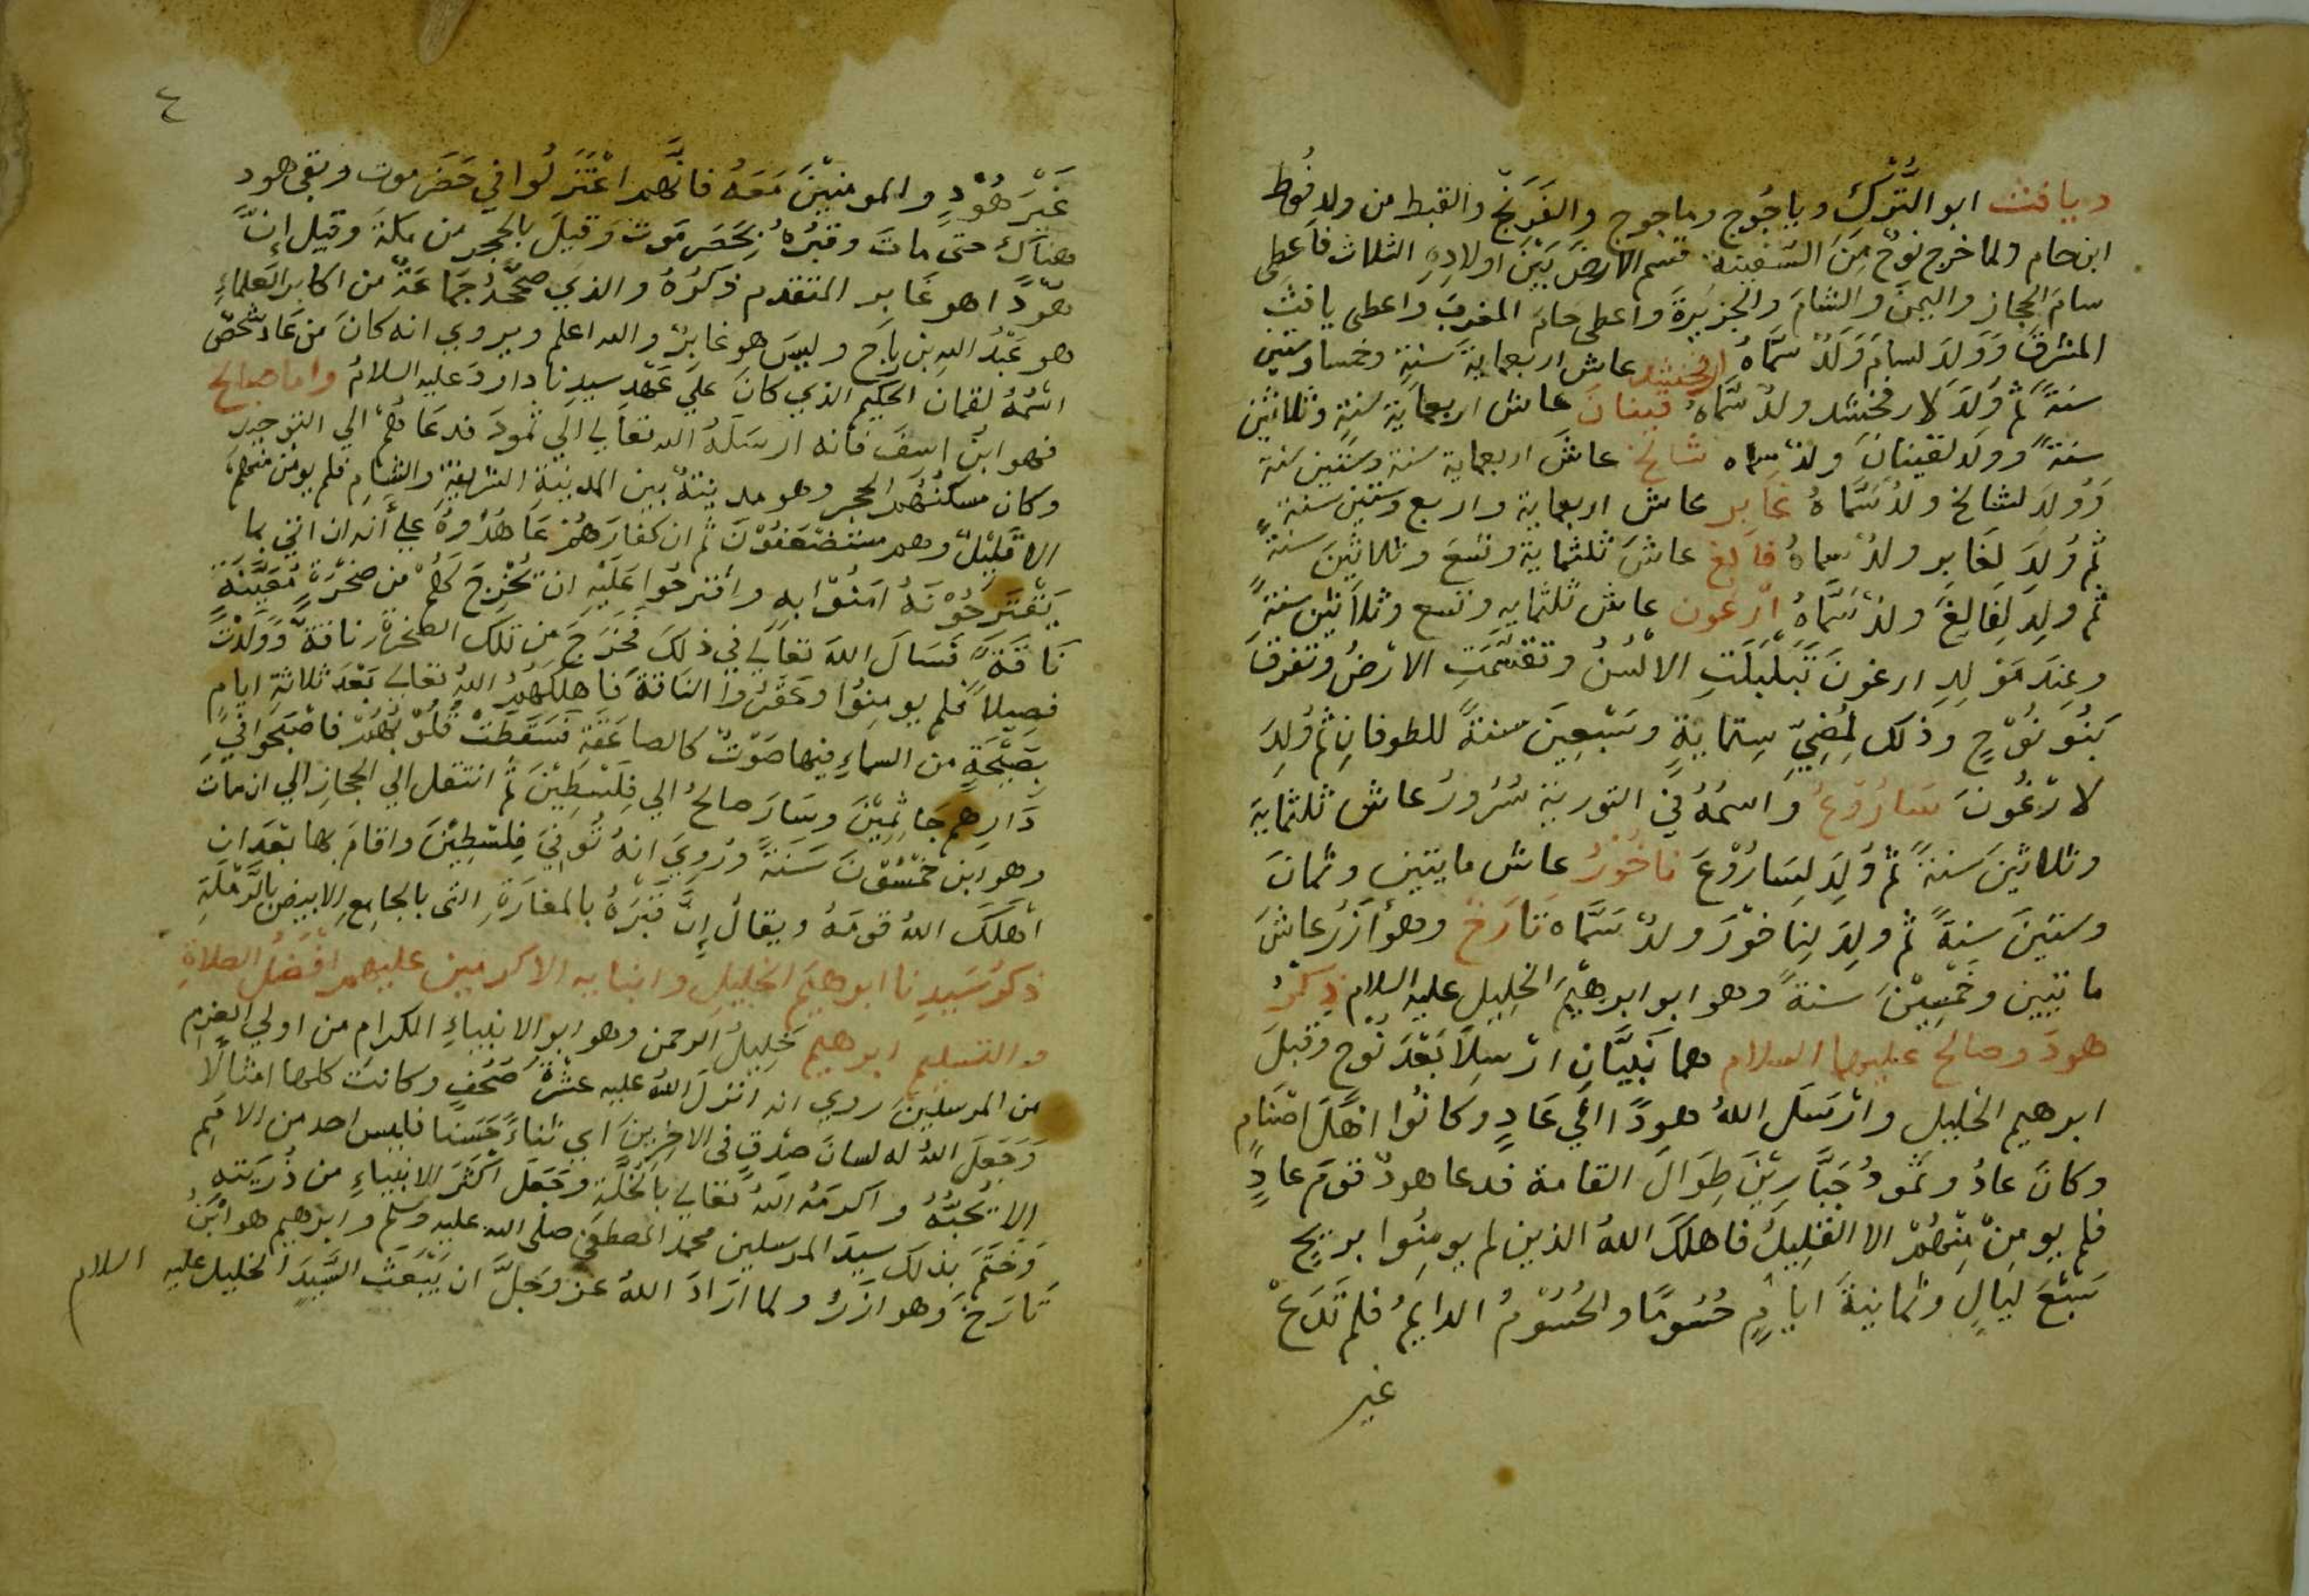 ويافث ابو التُّرْكِ وياجُوج وماجوج والفَرَنْج والقبط من ولدِ قُوط
ابن حام ولما خرج نوحٌ مِنَ السَّفينة قسم الارضَ بَيْنَ اولادِهِ الثلاث فاعطى
سامَ الحجاز واليمنَ والشامَ والجزيرةَ واعطى حامَ المغربَ واعطى يافثَ
المشرقَ وَوُلدَ لسامَ وَلَدٌ سمَّاهُ ارفخشد عاش اربعمايةَ سَنةٍ وخمسا وستين
سنةً ثم وُلِدَ لارفخشد ولدٌ سَمَّاهُ قينانَ عاش اربعمايَة سَنةٍ وثلاثين
سنةً وَولد لقينانَ ولدٌ سماه شالخ عاشَ اربعماية سنة وستين سنة
وَوُلِدَ لشالخ ولدٌ سَمَّاهُ غابر عاش اربعماية واربع وستين سنةً
ثم وُلِدَ لِغَابِرِ ولدٌ سماهُ فالغ عاشَ ثلثماية وتسعَ وثلاثينَ سنةً
ثم ولِدَ لِفالِغَ ولدٌ سَمَّاهُ ارغون عاش ثلثمايه وتسع وثلاثين سنةً
وعِندَ مَوْلِدِ ارغونَ تَبَلْبَلَتِ الالْسُنُ وتقسَّمَتِ الارْضُ وتفرقَ
بَنُو نُوْحٍ وذلك لِمُضِيِّ سِتمايةٍ وسَبْعِينَ سنةً للطوفانِ ثم وُلِدَ
لارْغُونَ سَارُوْعُ واسمُهُ في التورية سُرُورُ عاش ثلثمايةَ
وثلاثينَ سَنةً ثم وُلِدَ لِسَارُوْعَ ناخُوْرُ عاش مايتين وثمانَ
وستينَ سَنِةً ثم ولِدَ لِناخوْرَ ولدٌ سَمَّاه تَارَخ وهو آزَرُ عاشَ
مائتين وخَمْسِيْنَ سنةً وهو ابو ابرهيْمَ الخليلِ عليه السلام ذِكرُ
هودَ وصالح عليهما السلام هما نَبيَّانِ ارْسِلاَ بَعْدَ نُوْحٍ وقبلَ
ابرهيم الخليلِ وارْسَلَ اللهُ هودًا الى عَادٍ وكانُوا اهْلَ اصْنَامٍ
وكانَ عادُ وثمودُ جَبَّارِيْنَ طِوَالَ القامة فدعا هودٌ قوْمَ عادٍ
فلم يومِنْ مِنْهُمْ الا القَلِيلُ فاهلكَ اللهُ الذين لم يومِنُوا بريْحٍ
سَبْعَ ليَالٍ وثمانيةَ ايامٍ حُسُومًا والحُسُوْمُ الدايمُ فلم تَدَعْ
غير
٤
غَيْرَ هُوْدٍ والمومنِيْنَ مَعَهُ فانَّهم اعْتَزَلُوا في حَضَرموت وبقى هود
هناكَ حتى ماتَ وقبْرُهُ بحَضَرموت وَقيلَ بالحجرِ من مكةَ وقيل إنَّ
هوْدًا هو غَابر المتقدم ذكرُهُ والذي صَحَّحهُ جَمَاعَةٌ من اكابر العلماءِ
هو عَبْدُ اللهِ بن رِبَاح وليسَ هو غابِرُ والله اعلم ويروي انه كانَ من عَادٍ شخصٌ
اسْمُهُ لقمان الحكيم الذي كانَ علي عَهْدِ سيدِنا داردَ عليه السلامُ واما صالح
فهو ابن اسِف فانه ارسَلَهُ الله تعَالي الَي ثمودَ فدعَاهُمْ الي التوحيدِ
وكان مسكنُهُم الحجر وهو مدينةٌ بين المدينةِ الشريفةِ والشامِ فلم يومن منهمْ
الا قليْلٌ وهم مستضعَفوْنَ ثم ان كفارَهُمْ عَاهَدُوهُ علي أنه ان اتي بما
يَقْترِحُوْنَهُ امَنُوْا بهِ واقترحُوا عَلَيْهِ ان تخْرِجَ لَهُمْ من صَخْرَةٍ مُعَيَّنَةٍ
نَاقَةً فسَالَ اللهَ تعَالي في ذلكَ فخرَجَ من تلكَ الصخرةِ ناقةٌ وَوَلَدَتْ
فصِيلاً فلم يومِنُوا وعَقَرُوا الناقةَ فَاهلكَهُم اللهُ تعالي بَعْدَ ثلاثةِ ايامٍ
بِصَيْحَةٍ من السماءِ فيها صَوْتٌ كالصاعَقةِ فسَقطَتْ قُلُوْبُهُمْ فاصْبَحوا في
دَارِهم جَاثِمِيْنَ وسَارَ صالحٌ الي فِلَسْطِيْنَ ثم انتقل الي الحجازِ الي ان مات
وهو ابن خمْسُوْنَ سَنةً ورُوِيَ انهُ تُوفيَ فِلَسْطِيْنَ واقامَ بها بَعْدَ ان
اهْلكَ اللهُ قومَهُ ويقالُ إنَّ قبْرَهُ بالمغارَةِ التى بالجامِع الابيض بالرَّمْلَةِ
ذكرُ سَيدِنا ابرهيمَ الخليلِ وابنايه الاكرمين عليهم افْضَلُ الصلاةِ
والتسليم ابرهيم خليلُ الرحمن وهو ابو الانبياءِ الكرام من اولي العزمِ
من المرسلينَ روي انه انزلَ اللهُ عليه عَشْرَةَ صُحُفٍ وكانت كلها امثالاً
وَجَعلَ اللهُ له لسانَ صدْقٍ فى الاخرينَ اي ثناءً حَسَنا فليس احد من الاممِ
الا يُحبُّهُ واكرمَهُ اللهُ تعالي بالخُلَّةِ وجَعَلَ اكثرَ الانبياءِ من ذُريتهِ
وَخَتَمَ بذلكَ سيدَ المرسلين محمد المصطفى صلى الله عليه وَسَلم وابرهيم هو ابْنُ
تَارَخ وهو ازرُ ولما ارَادَ اللهُ عز وَجلَّ ان يَبْعَثَ السَّيدَ الخليل عليه السلام